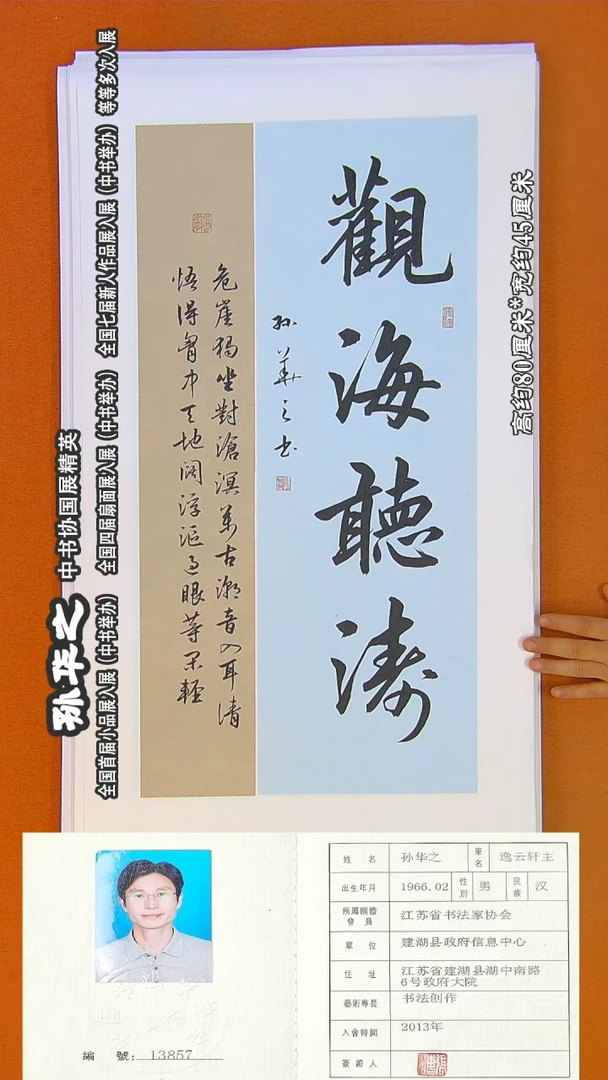 觀海聽濤
孙華之书
危崖獨坐對滄溟萬古潮音入耳清
悟得胷中天地阔浮漚过眼等闲輕
高约80厘米*宽约45厘米
孙华之 中书协国展精英
全国首届小品展入展（中书举办） 全国四届扇面展入展（中书举办） 全国七届新人作品展入展（中书举办） 等等多次入展
編 號：13857
姓 名 孙华之 筆名 逸云轩主
出生年月 1966.02 性別 男 民族 汉
所屬團體會員 江苏省书法家协会
單 位 建湖县政府信息中心
住 址 江苏省建湖县湖中南路
6号政府大院
藝術專長 书法创作
入會時間 2013年
簽證人